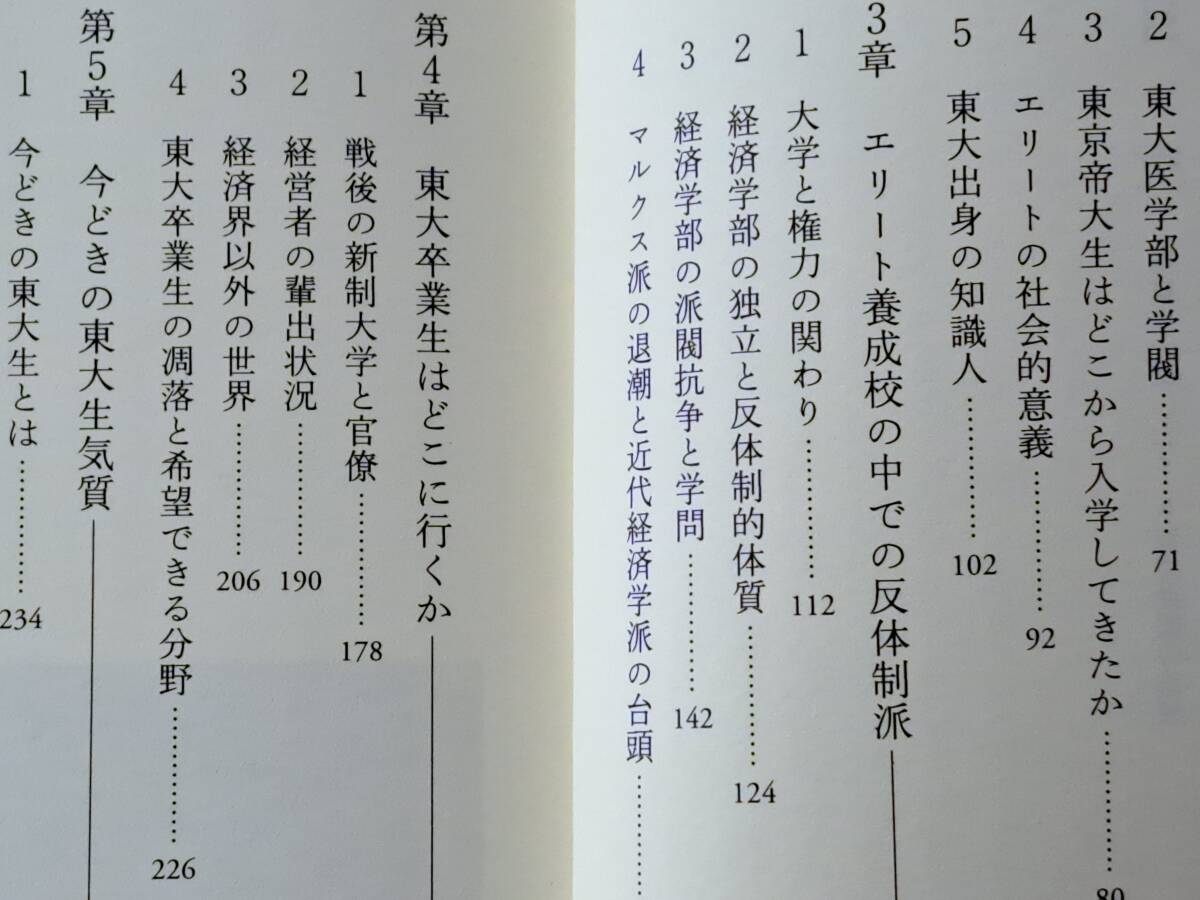 2 東大医学部と学閥…………71
3 東京帝大生はどこから入学してきたか…………80
4 エリートの社会的意義…………92
5 東大出身の知識人…………102
3章 エリート養成校の中での反体制派
1 大学と権力の関わり…………112
2 経済学部の独立と反体制的体質…………124
3 経済学部の派閥抗争と学問…………142
4 マルクス派の退潮と近代経済学派の台頭…………
第4章 東大卒業生はどこに行くか
1 戦後の新制大学と官僚…………178
2 経営者の輩出状況…………190
3 経済界以外の世界…………206
4 東大卒業生の凋落と希望できる分野…………226
第5章 今どきの東大生気質
1 今どきの東大生とは…………234